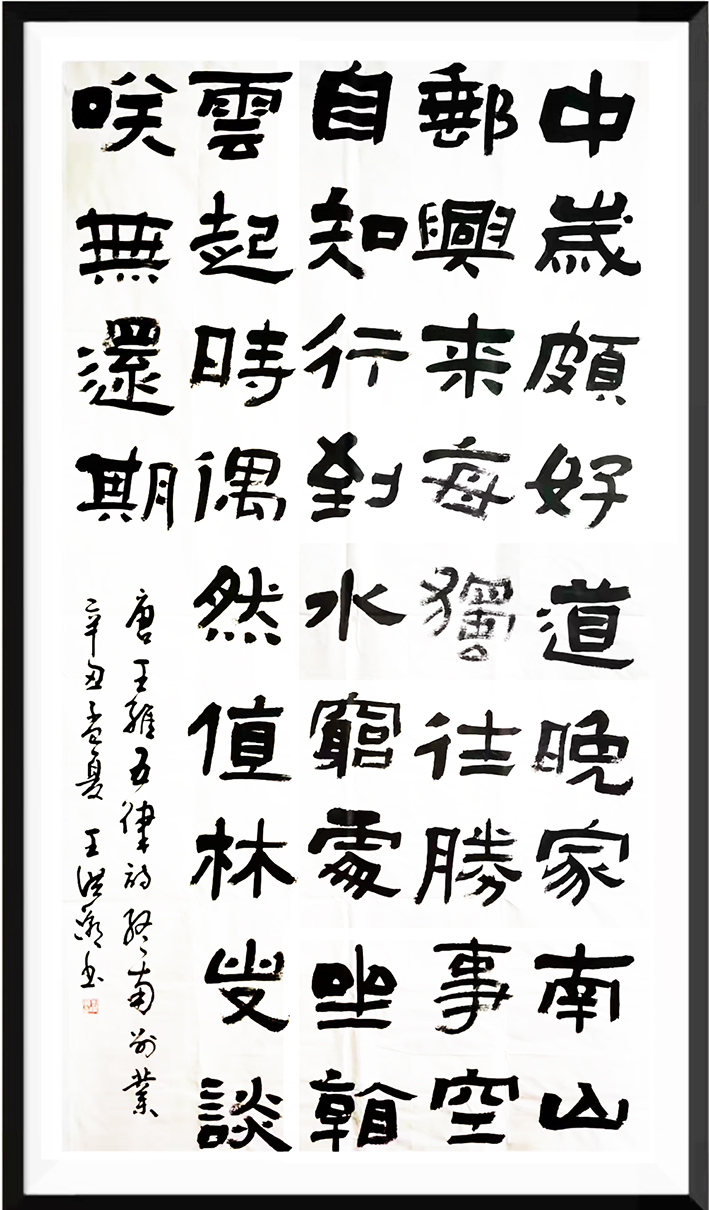 中歲頗好道晚家南山
郵興来每獨往勝事空
自知行到水窮處坐看
雲起時偶然值林叟談
咲無還期
唐王維五律詩終南別業
辛丑孟夏 王洪书